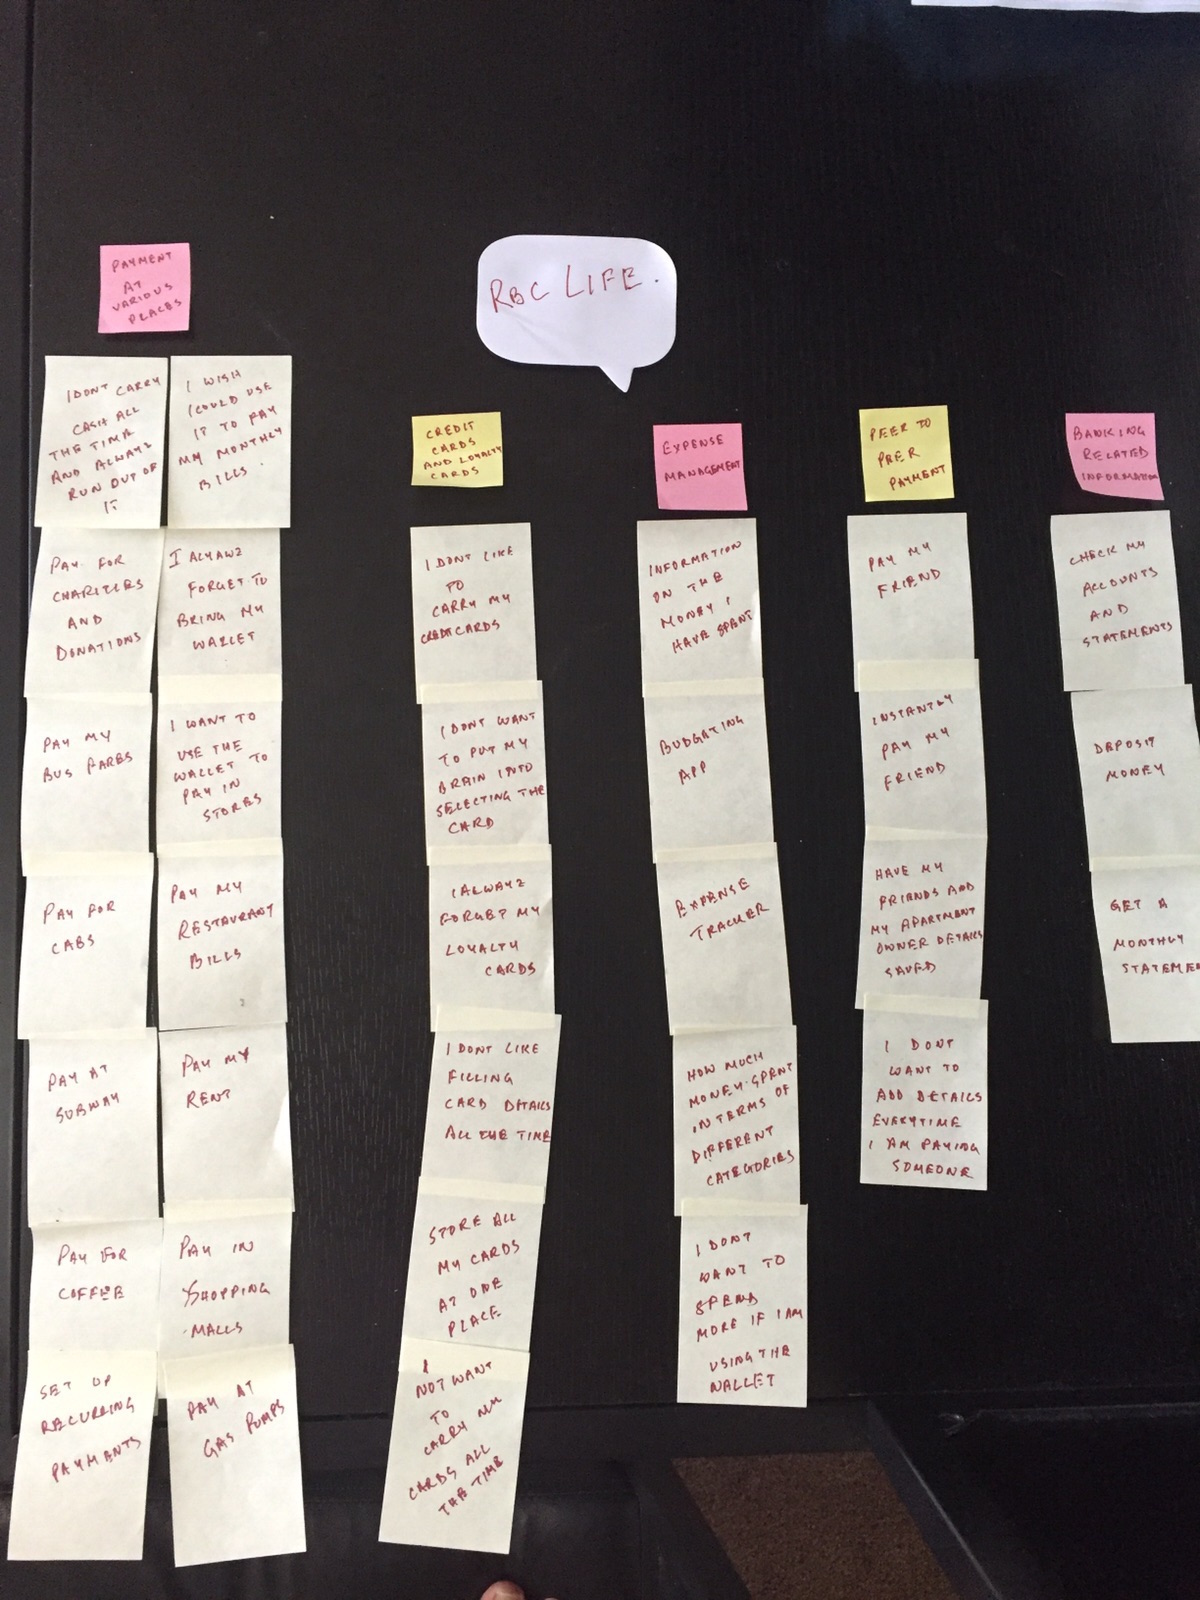 RBC LIFE.
PAYMENT
AT
VARIOUS
PLACES
I DONT CARRY
CASH ALL
THE TIME
AND ALWAYZ
RUN OUT OF
IT
PAY FOR
CHARITIES
AND
DONATIONS
PAY MY
BUS FARES
PAY FOR
CABS
PAY AT
SUBWAY
PAY FOR
COFFEE
SET UP
RECURRING
PAYMENTS
I WISH
I COULD USE
IT TO PAY
MY MONTHLY
BILLS.
I ALYAWZ
FORGET TO
BRING MY
WALLET
I WANT TO
USE THE
WALLET TO
PAY IN
STORES
PAY MY
RESTAURANT
BILLS
PAY MY
RENT
PAY IN
SHOPPING
MALLS
PAY AT
GAS PUMPS
CREDIT
CARDS
AND LOYALTY
CARDS
I DONT LIKE
TO
CARRY MY
CREDIT CARDS
I DONT WANT
TO PUT MY
BRAIN INTO
SELECTING THE
CARD
I ALWAYZ
FORGET MY
LOYALTY
CARDS
I DONT LIKE
FILLING
CARD DETAILS
ALL THE TIME
STORE ALL
MY CARDS
AT ONE
PLACE
I
NOT WANT
TO
CARRY MY
CARDS ALL
THE TIME
EXPENSE
MANAGEMENT
INFORMATION
ON THE
MONEY I
HAVE SPENT
BUDGATING
APP
EXPENSE
TRACKER
HOW MUCH
MONEY SPENT
IN TERMS OF
DIFFERENT
CATEGORIES
I DONT
WANT TO
SPEND
MORE IF I AM
USING THE
WALLET
PEER TO
PEER
PAYMENT
PAY MY
FRIEND
INSTANTLY
PAY MY
FRIEND
HAVE MY
FRIENDS AND
MY APARTMENT
OWNER DETAILS
SAVED
I DONT
WANT TO
ADD DETAILS
EVERYTIME
I AM PAYING
SOMEONE
BANKING
RELATED
INFORMATION
CHECK MY
ACCOUNTS
AND
STATEMENTS
DEPOSIT
MONEY
GET A
MONTHLY
STATEME